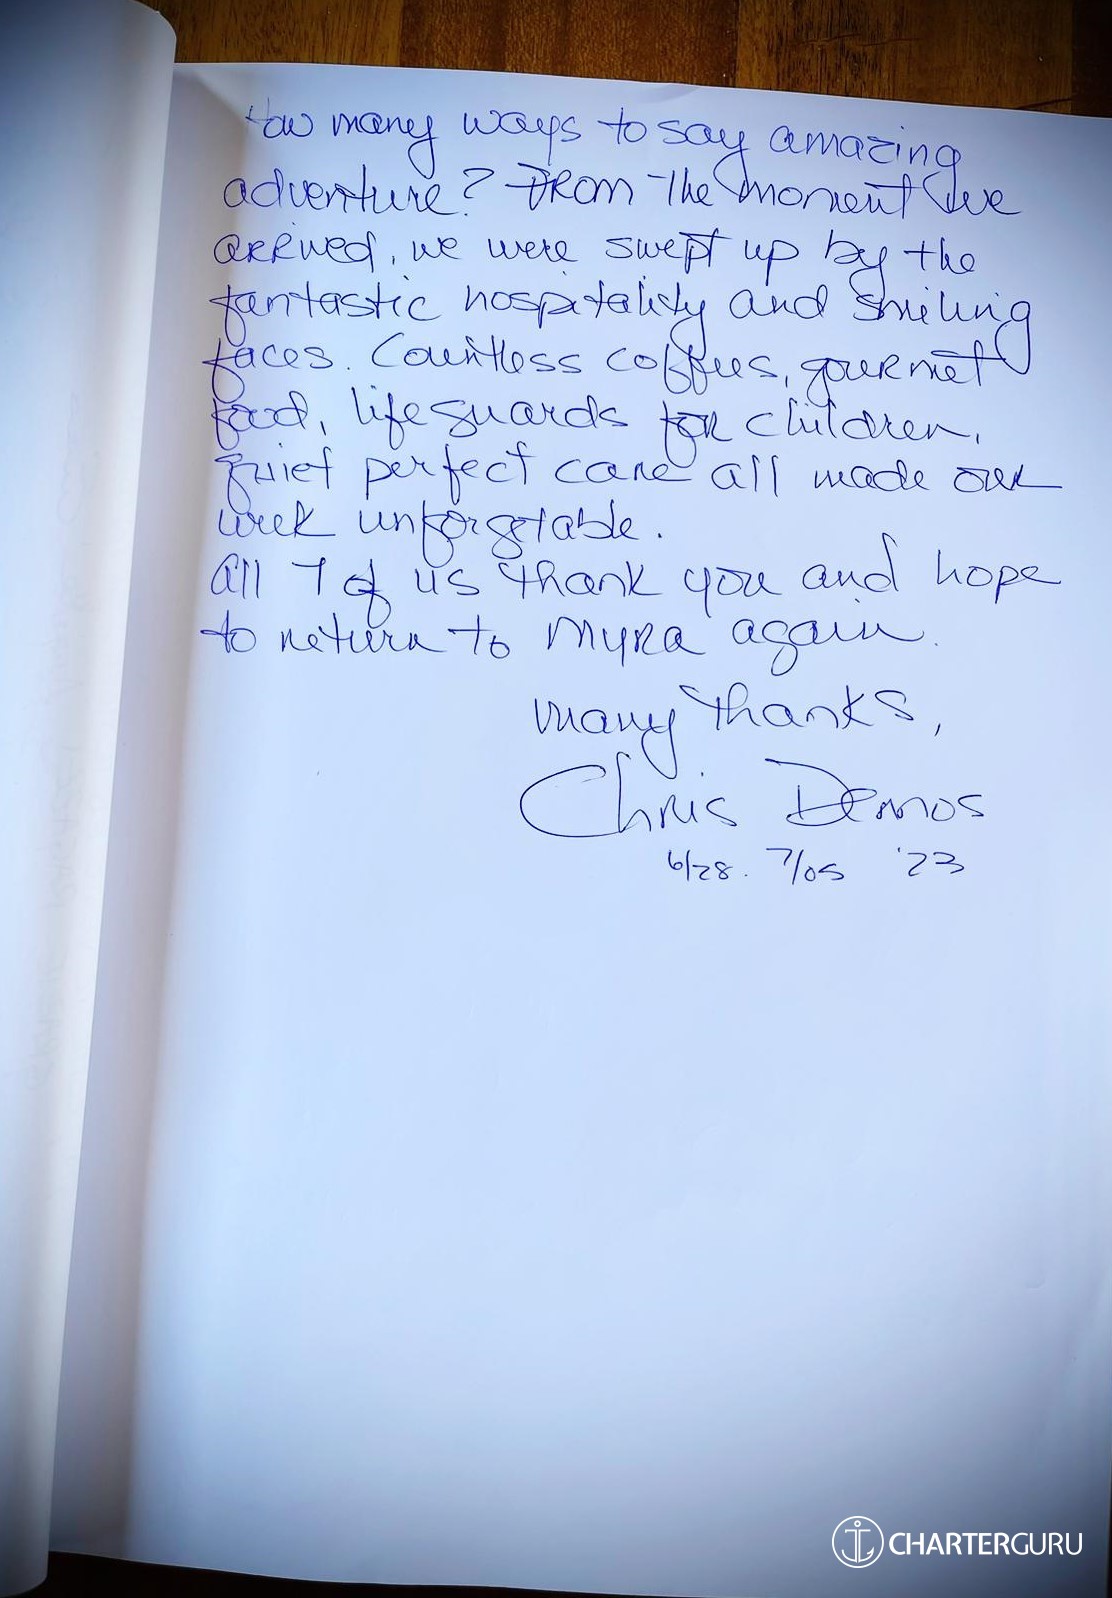 How many ways to say amazing
adventure? From the moment we
arrived, we were swept up by the
fantastic hospitality and smiling
faces. Countless coffees, gourmet
food, lifeguards for children,
quiet perfect care all made our
week unforgetable.
All 7 of us thank you and hope
to return to Myra again.
Many thanks,
Chris Demos
6/28. 7/05 '23
CHARTERGURU